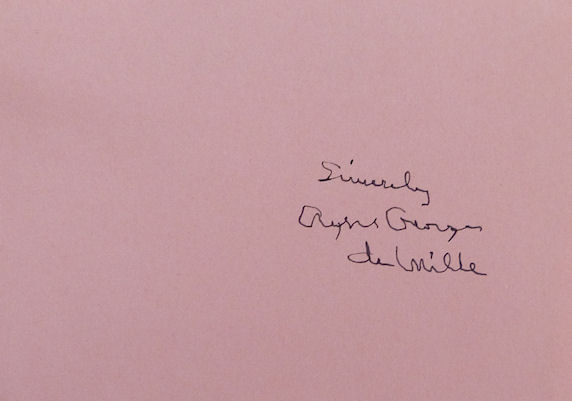 Sincerely
Agnes George
de Mille